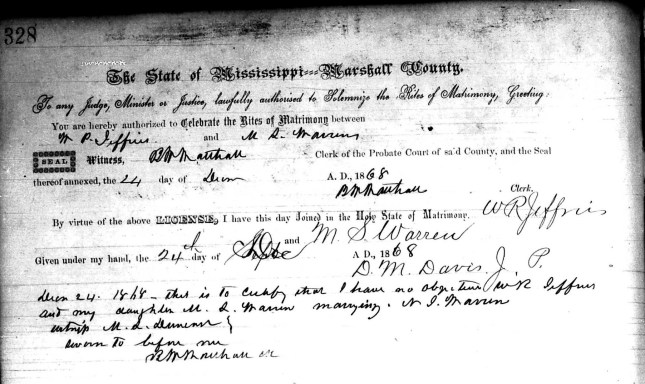 328
The State of Mississippi---Marshall County.
To any Judge, Minister or Justice, lawfully authorised to Solemnize the Rites of Matrimony, Greeting:
You are hereby authorized to Celebrate the Rites of Matrimony between
W P Jeffries and M S Warren
SEAL Witness, B W Marshall Clerk of the Probate Court of sa'd County, and the Seal
thereof annexed, the 24 day of Decm A. D., 1868
B W Marshall Clerk,
By virtue of the above LICENSE, I have this day Joined in the Holy State of Matrimony. W R Jeffries
and M. S. Warren
Given under my hand, the 24th day of A D., 1868
D. M. Davis J. P.
Decm 24. 1868 - this is to certify that I have no objection W R Jeffries
and my daughter M. S. Warren marrying. N. J. Warren
M. L.
sworn to before me
B W Marshall clk